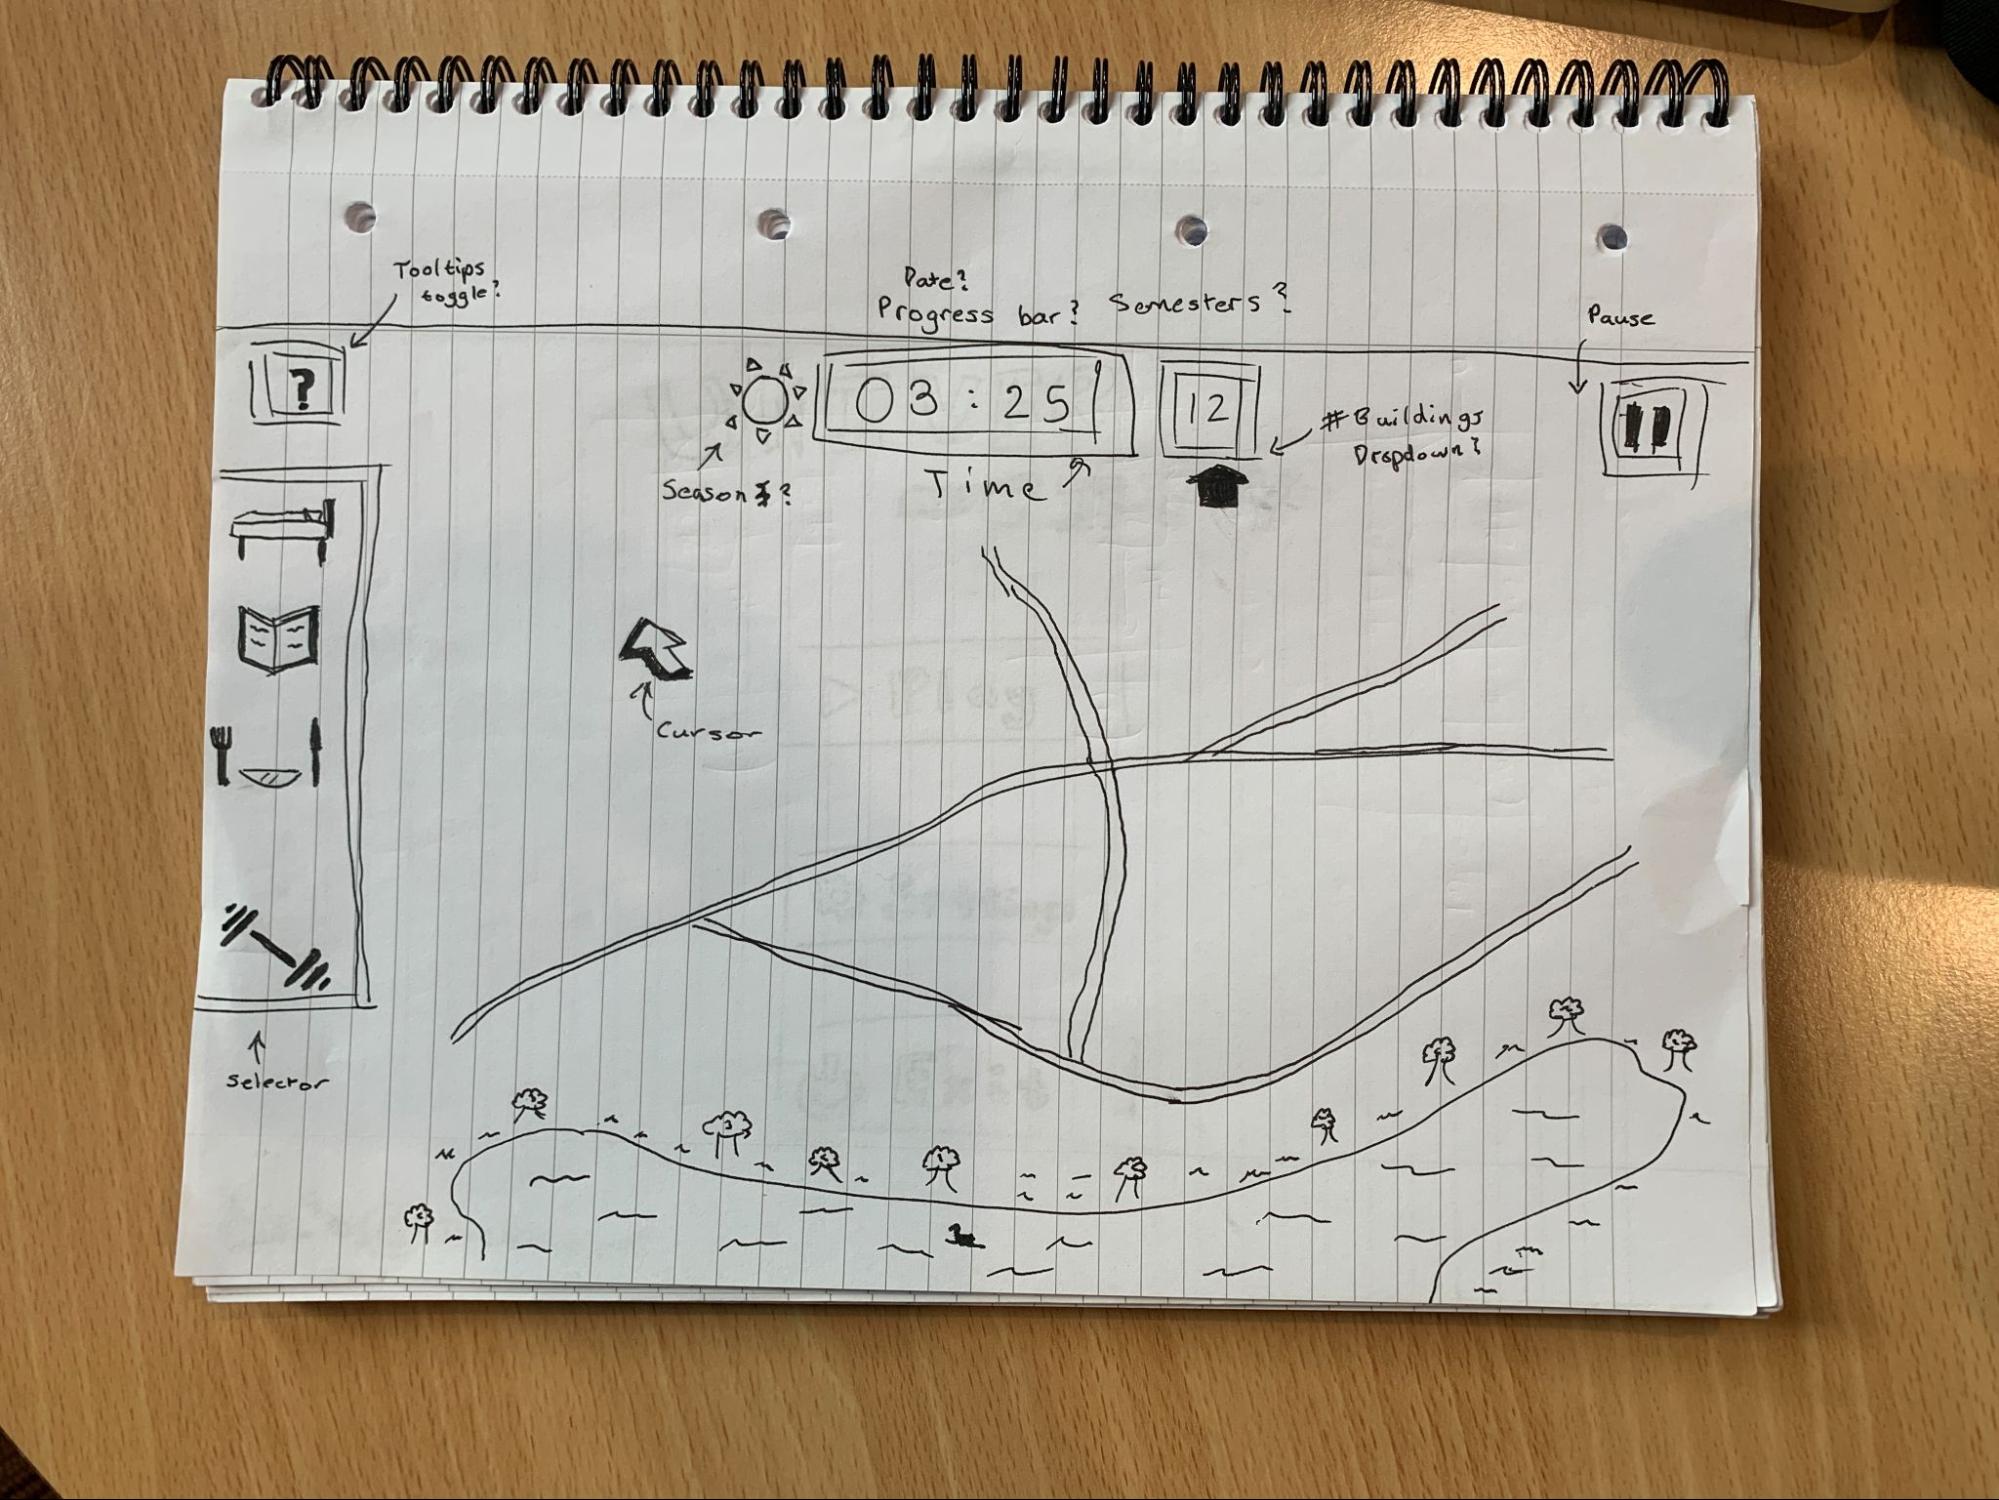 Tooltips
toggle?
Date?
Progress bar? Semesters?
Pause
?
03:25
12
#Buildings
Dropdown?
Season?
Time
Cursor
Selector